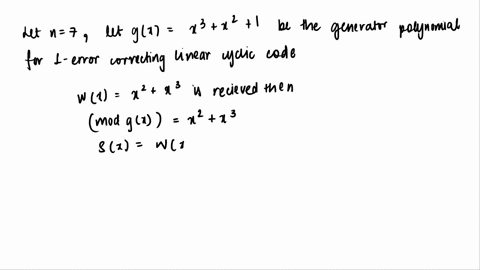 Let n=7, let g(x) = x³+x²+1 be the generator polynomial
for 1-error correcting linear cyclic code
W(1) = x²+x³ is recieved then
(mod g(x)) = x²+x³
S(x) = W(x